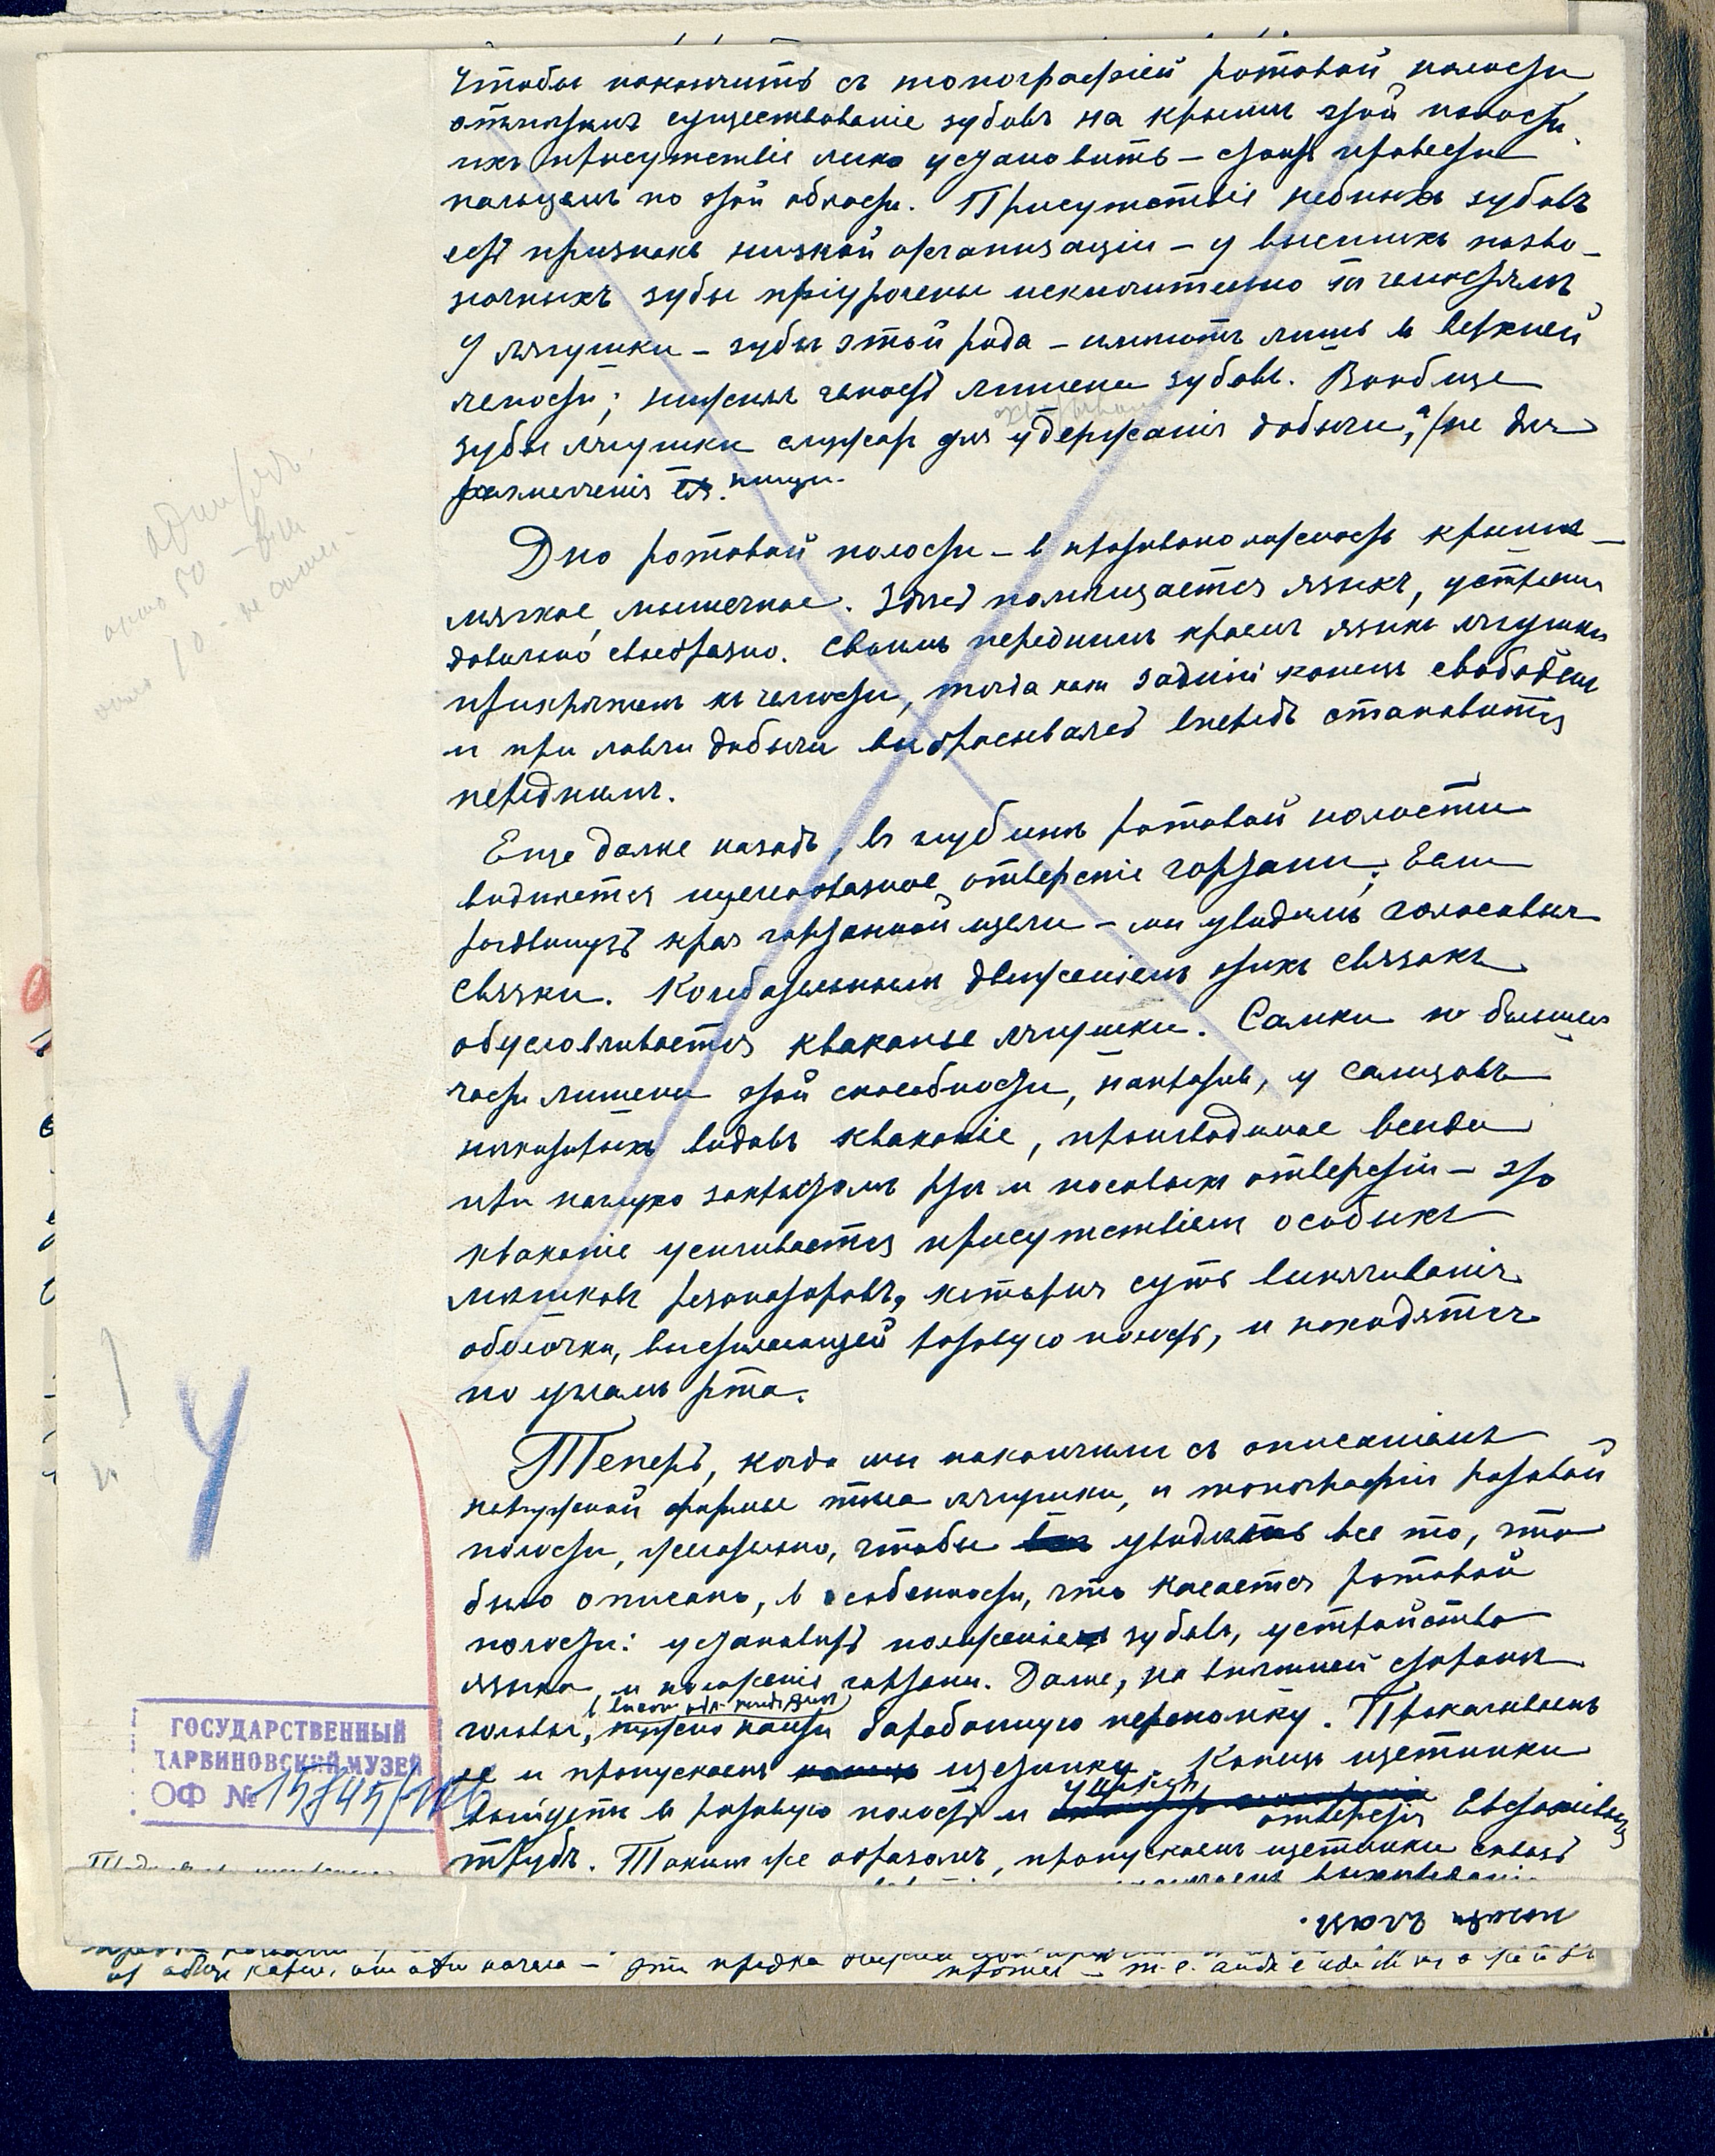 Чтобы покончить съ топографіей ротовой полости
отмѣтимъ существованіе зубовъ на крышѣ этой полости
ихъ присутствіе легко установить – стоитъ провести
пальцемъ по этой области. Присутствіе небныхъ зубовъ
есть признакъ низкой организаціи – у высшихъ позво-
ночныхъ зубы пріурочены исключительно къ челюстямъ
У лягушки – зубы этой рода – имѣютъ лишь въ верхней
челюсти; нижняя челюсть лишена зубовъ. Вообще
зубы лягушки служатъ для удержанія добычи, а не для
размельченія пищи.
Дно ротовой полости – въ противоположность крышѣ –
мягкое, мышечное. Здѣсь помѣщается языкъ, устроенъ
довольно своеобразно. Своимъ переднимъ краемъ языкъ лягушки
прикрѣпленъ къ челюсти, тогда какъ задній конецъ свободенъ
и при ловли добычи выбрасываясь впередъ становится
переднимъ.
Еще далѣе назадъ, въ глубинѣ ротовой полости
виднѣется щелеобразное отверстіе гортани. Если
раздвинуть края гортанной щели – мы увидимъ голосовыя
связки. Колебательнымъ движеніемъ этихъ связокъ
обусловливается кваканье лягушки. Самки по большей
части лишены этой способности, напротивъ, у самцовъ
нѣкоторыхъ видовъ кваканіе, производимое всегда
при наглухо закрытомъ рта и носовыхъ отверстій – это
кваканіе усиливается присутствіемъ особыхъ
мѣшковъ резонаторовъ, которыя суть выпячиванія
оболочки, выстилающей ротовую полость, и находятся
по угламъ рта.
Теперь, когда мы покончили съ описаніемъ
наружной формы тѣла лягушки, и топографіи ротовой
полости, желательно, чтобы увидѣть все то, что
было описано, въ особенности, что касается ротовой
полости: установить положеніе зубовъ, устройство
языка и положенія гортани. Далѣе, на внѣшней сторонѣ
головы, нужно найти барабанную перепонку. Прокалываемъ
ее и пропускаемъ щетинку. Конецъ щетинки
выйдетъ въ ротовую полость и отверстія Евстахіевыхъ
трубъ. Такимъ же образомъ, пропускаемъ щетинки сквозь
ГОСУДАРСТВЕННЫЙ
ДАРВИНОВСКИЙ МУЗЕЙ
ОФ №